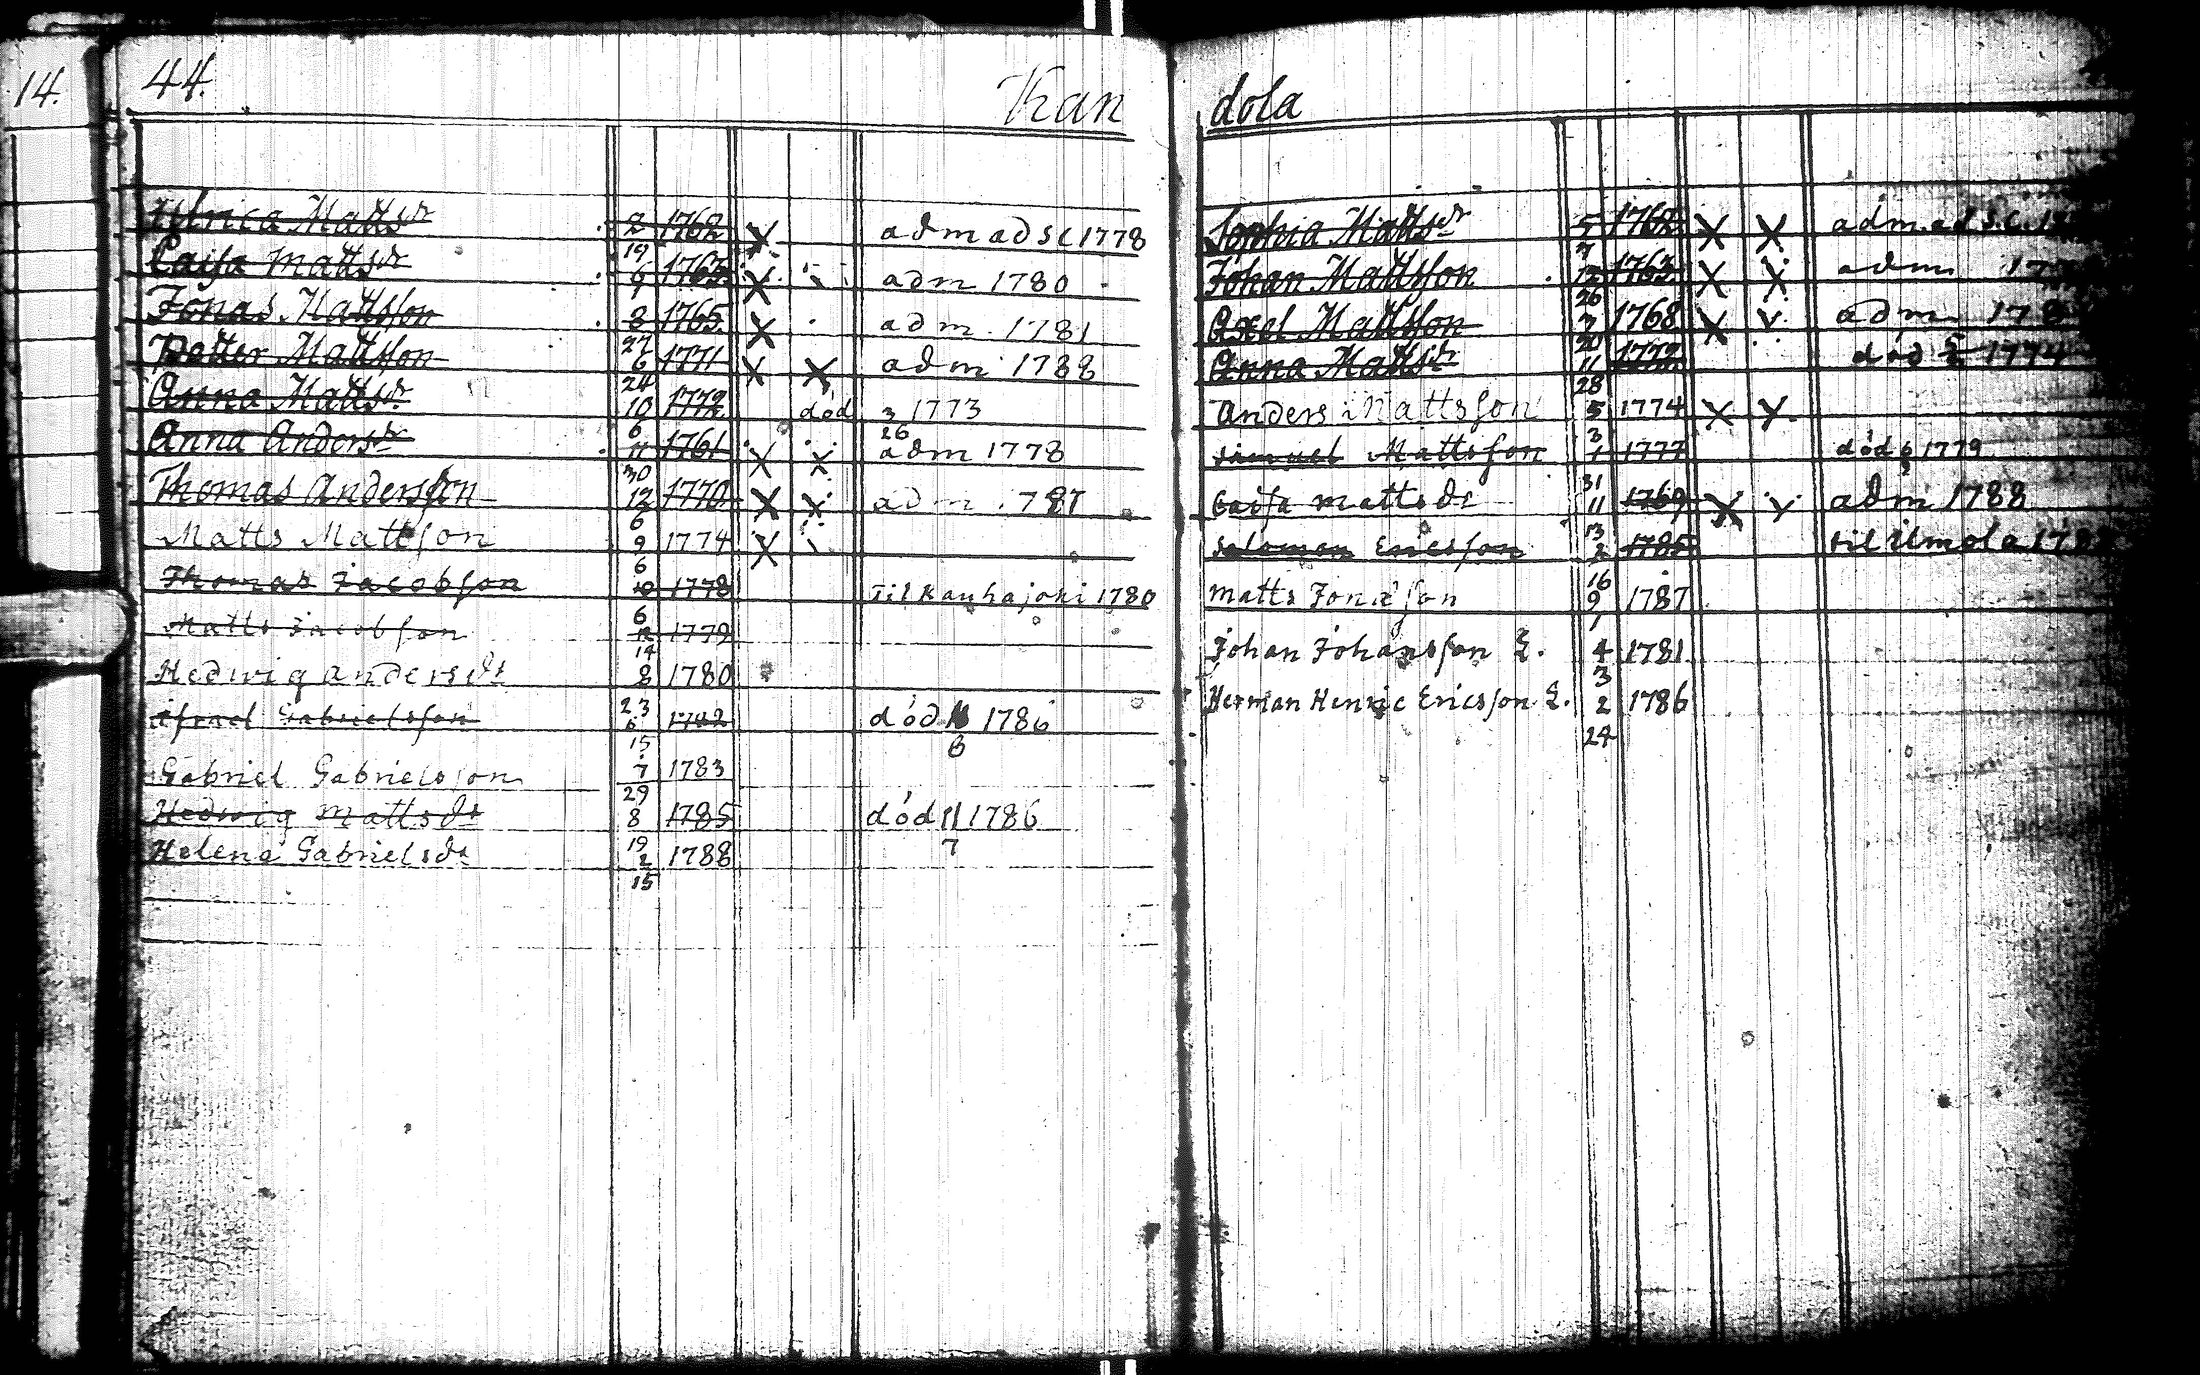 14.
44.
Kan
Ulrica Mattsdr 2/19 1762 X adm ad s c 1778
Caisa Mattsdr 6/9 1763 X adm 1780
Jonas Mattsson 8/27 1765 X adm. 1781
Petter Mattsson 6/24 1771 X X adm 1788
Anna Mattsdr 10/6 1772 död 3/26 1773
Anna Andersdr 11/30 1761 X X adm 1778
Thomas Andersson 12/6 1770 X X adm 1787
Matts Mattsson 9/6 1774 X
Thomas Jacobson 10/6 1778 Til Kauhajoki 1780
Matts Jacobson 12/14 1779
Hedwig Andersdr 8/23 1780
Israel Gabrielsson 6/15 1782 död 11/6 1786
Gabriel Gabrielsson 7/29 1783
Hedwig Mattsdr 8/19 1785 död 11/7 1786
Helena Gabrielsdr 2/15 1788
dola
Sophia Mattsdr 5/7 1762 X X adm. ad s. c.
Johan Mattsson 12/26 1763 X X adm
Axel Mattsson 7/20 1768 X X adm
Anna Mattsdr 11/28 1772 död 1774
Anders Mattsson 5/3 1774 X X
Samuel Mattsson 1/31 1777 död 1779
Caisa Mattsdr 11/13 1769 X X adm 1788
Salomon Ericsson 2/16 1785 til Ilmola
Matts Jonasson 9/1 1787
Johan Johansson 4/3 1781
Herman Henric Ericsson 2/24 1786